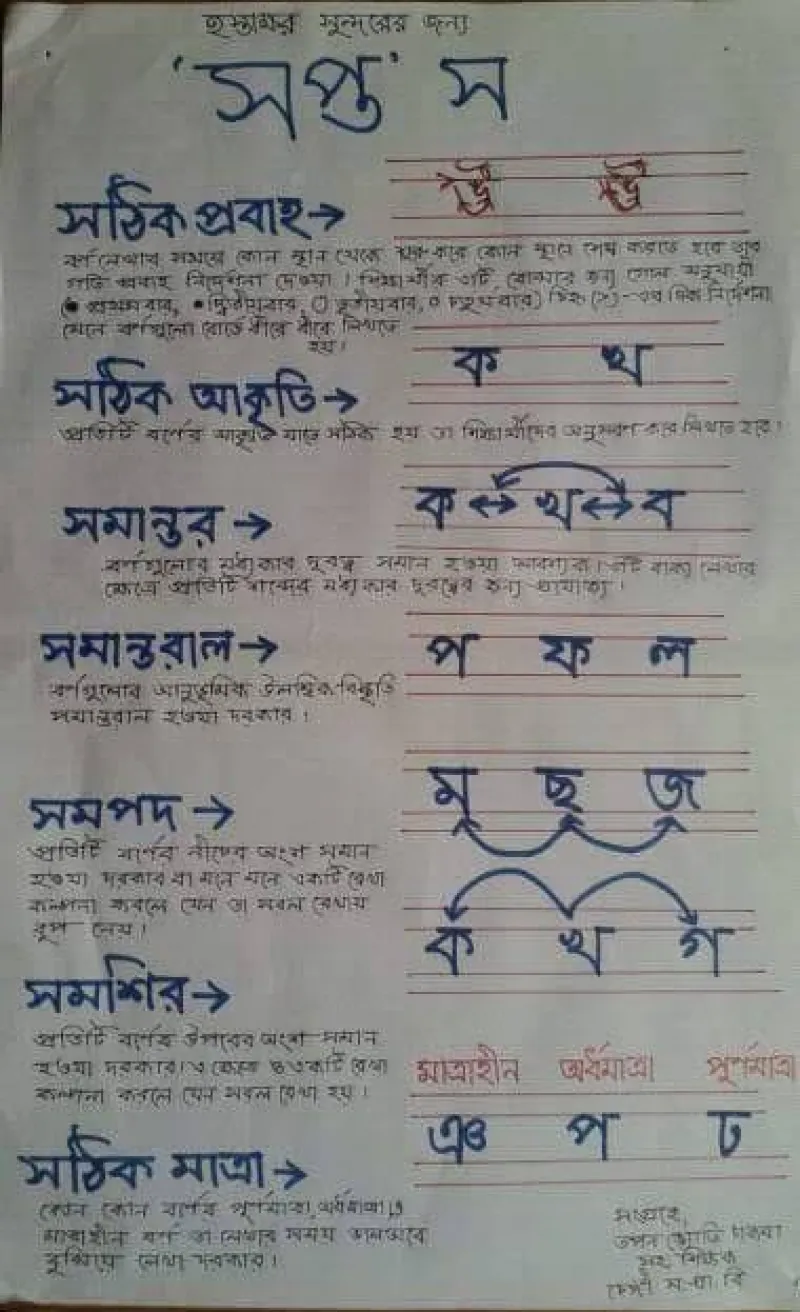 হস্তাক্ষর সুন্দরের জন্য
'সপ্ত' স
সঠিক প্রবাহ →
বর্ণ লেখার সময়ে কোন স্থান থেকে শুরু করে কোন স্থানে শেষ করতে হবে তার
গতি প্রবাহ নির্দেশনা দেওয়া। শিক্ষার্থীর এটি বোঝার জন্য গোল অনুযায়ী
(● প্রথমবার, ● দ্বিতীয়বার, ○ তৃতীয়বার, ০ চতুর্থবার) চিহ্ন (>)-এর দিক নির্দেশনা
মেনে বর্ণগুলো বোর্ডে ধীরে ধীরে লিখতে
হয়।
ক খ
সঠিক আকৃতি →
প্রতিটি বর্ণের আকৃতি যাতে সঠিক হয় তা শিক্ষার্থীদের অনুসরণ করে লিখতে হবে।
ক ↔ খ ↔ ব
সমান্তর →
বর্ণগুলোর মধ্যকার দূরত্ব সমান হওয়া আবশ্যক। এটি বাক্য লেখার
ক্ষেত্রে প্রতিটি শব্দের মধ্যকার দূরত্বের জন্য প্রযোজ্য।
সমান্তরাল →
প ফ ল
বর্ণগুলোর আনুভূমিক উলম্বিক বিস্তৃতি
সমান্তরাল হওয়া দরকার।
মূ ছূ জূ
সমপদ →
প্রতিটি বর্ণের নীচের অংশ সমান
হওয়া দরকার বা মনে মনে একটি রেখা
কল্পনা করলে যেন তা সরল রেখায়
রূপ নেয়।
ক খ গ
সমশির →
প্রতিটি বর্ণের উপরের অংশ সমান
হওয়া দরকার। এ ক্ষেত্রে একটি রেখা
কল্পনা করলে যেন সরল রেখা হয়।
মাত্রাহীন অর্ধমাত্রা পূর্ণমাত্রা
ঞ প ঢ
সঠিক মাত্রা →
কোন কোন বর্ণের পূর্ণমাত্রা, অর্ধমাত্রা ও
মাত্রাহীন বর্ণ তা লেখার সময় ভালভাবে
বুঝিয়ে লেখা দরকার।
তপন জ্যোতি চাকমা
সহ শিক্ষক